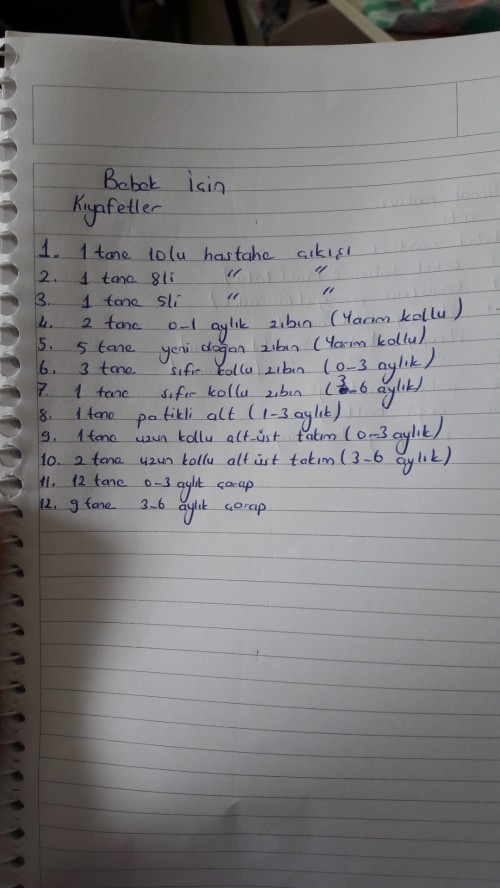 Bebek için
Kıyafetler
1. 1 tane 10lu hastahe çıkışı
2. 1 tane 8li " "
3. 1 tane 5li " "
4. 2 tane 0-1 aylık zıbın (Yarım kollu)
5. 5 tane yeni doğan zıbın (Yarım kollu)
6. 3 tane sıfır kollu zıbın (0-3 aylık)
7. 1 tane sıfır kollu zıbın (3-6 aylık)
8. 1 tane patikli alt (1-3 aylık)
9. 1 tane uzun kollu alt-üst takım (0-3 aylık)
10. 2 tane uzun kollu alt üst takım (3-6 aylık)
11. 12 tane 0-3 aylık çorap
12. 9 tane 3-6 aylık çorap